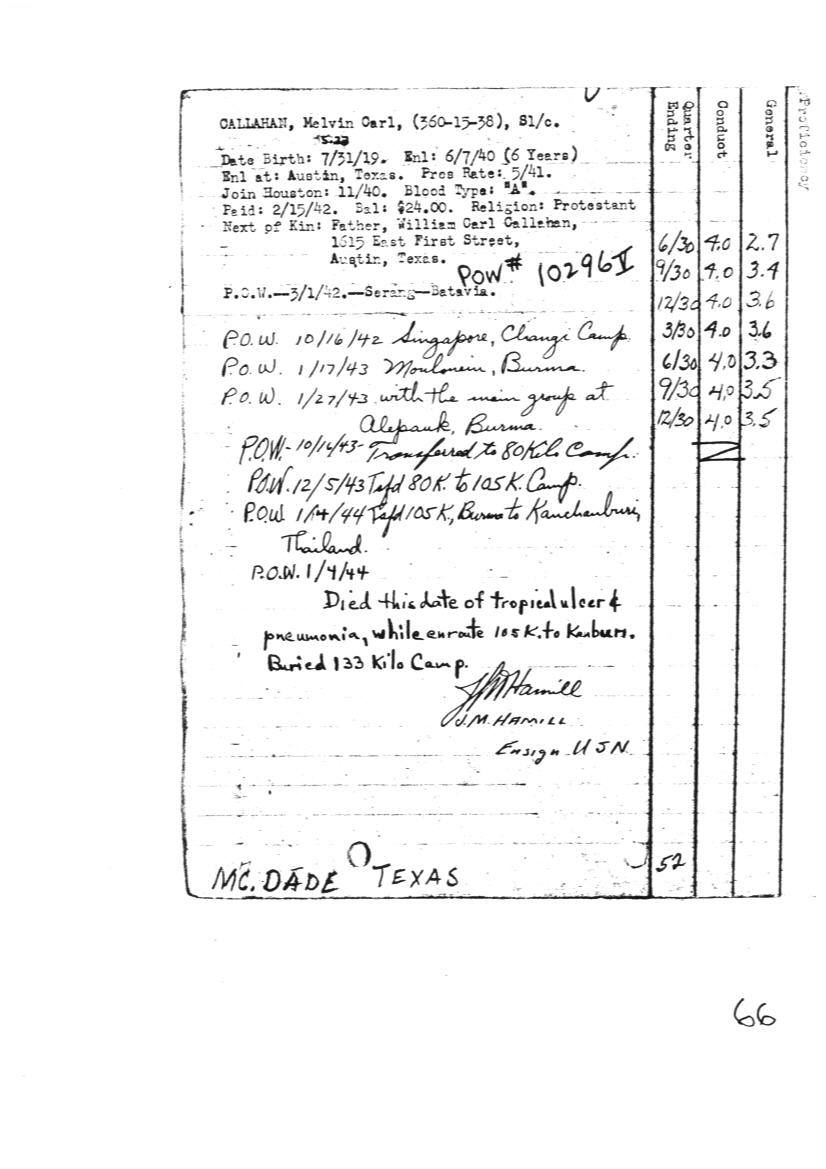 CALLAHAN, Melvin Carl, (360-15-38), S1/c.
Date Birth: 7/31/19. Enl: 6/7/40 (6 Years)
Enl at: Austin, Texas. Pres Rate: 5/41.
Join Houston: 11/40. Blood Type: "A".
Paid: 2/15/42. Bal: $24.00. Religion: Protestant
Next of Kin: Father, William Carl Callahan,
1615 East First Street,
Austin, Texas.
POW# 10296 V
P.O.W.--3/1/42.--Serang--Batavia.
P.O.W. 10/16/42 Singapore, Changi Camp
P.O.W. 1/17/43 Moulmein, Burma.
P.O.W. 1/27/43 with the main group at
Alepauk, Burma.
P.O.W.- 10/16/43- Transferred to 80 Kilo Camp.
P.O.W. 12/5/43 Tsfd 80 K. to 105 K. Camp.
P.O.W. 1/4/44 Tsfd 105 K., Burma to Kanchanburi,
Thailand.
P.O.W. 1/4/44
Died this date of tropical ulcer &
pneumonia, while enroute 105 K. to Kanburi.
Buried 133 Kilo Camp.
JM Hamill
J.M. HAMILL
Ensign USN
MC. DADE TEXAS
Quarter Ending Conduct General Proficiency
6/30 4.0 2.7
9/30 4.0 3.4
12/30 4.0 3.6
3/30 4.0 3.6
6/30 4.0 3.3
9/30 4.0 3.5
12/30 4.0 3.5
52
66